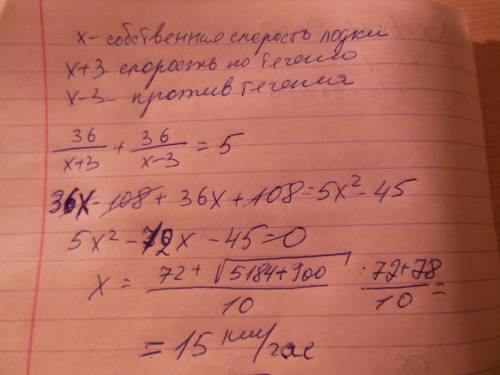 x - собственная скорость лодки
x+3 скорость по течению
x-3 против течения
36/x+3 + 36/x-3 = 5
36x - 108 + 36x + 108 = 5x² - 45
5x² - 72x - 45 = 0
x = 72 + √5184+900 / 10 : 72+78 / 10 =
= 15 км/час